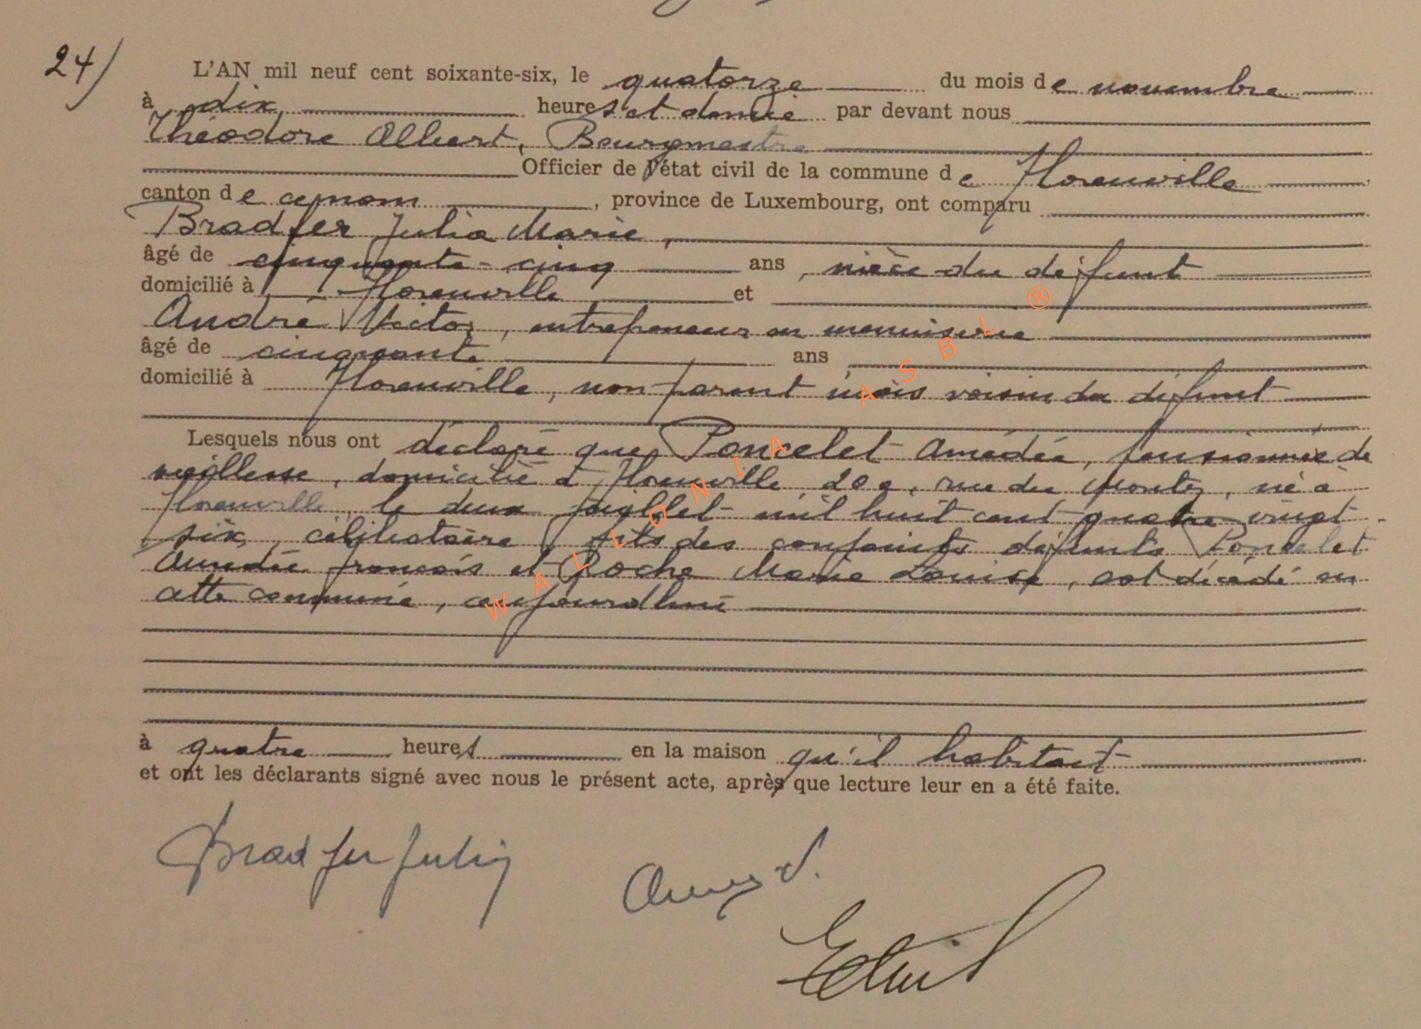 24)
L'AN mil neuf cent soixante-six, le quatorze du mois de novembre
à dix heures et demie par devant nous
Théodore Albert, Bourgmestre
Officier de l'état civil de la commune de Florenville
canton de , province de Luxembourg, ont comparu
Bradfer Julia Marie,
âgé de cinquante-cinq ans, nièce du défunt
domicilié à Florenville et
André Victor, entrepreneur en menuiserie
âgé de cinquante ans
domicilié à Florenville, non parent mais voisin du défunt
Lesquels nous ont déclaré que Poncelet Amédée, pensionné de
vieillesse, domicilié à Florenville, 20a, rue du , né à
Florenville, le deux juillet mil huit cent quatre-vingt-
six, célibataire, fils des conjoints défunts Poncelet
Amédée François et Roche Marie Louise, est décédé en
cette commune, aujourd'hui
à quatre heures en la maison qu'il habitait
et ont les déclarants signé avec nous le présent acte, après que lecture leur en a été faite.
Bradfer Julia
WALLONIA ASBL ®